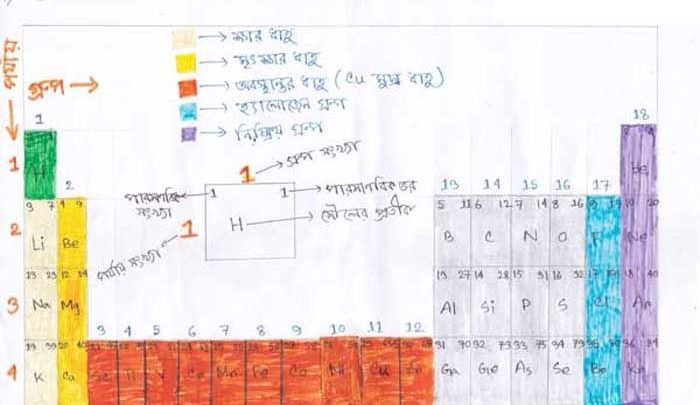 → ক্ষার ধাতু
→ মৃৎক্ষার ধাতু
→ অবস্থান্তর ধাতু (Cu মুদ্রা ধাতু)
→ হ্যালোজেন গ্রুপ
→ নিষ্ক্রিয় গ্রুপ
পর্যায়
গ্রুপ →
1 18
1 → গ্রুপ সংখ্যা
পারমানবিক সংখ্যা
1 1 → পারমানবিক ভর
H → মৌলের প্রতীক
পর্যায় সংখ্যা 1
1 H He
2 13 14 15 16 17
3 7 4 9 5 11 6 12 7 14 8 16 9 19 10 20
2 Li Be B C N O F Ne
23 12 24 13 27 14 28 15 31 16 32 17 18 40
3 Na Mg Al Si P S Cl Ar
3 4 5 6 7 8 9 10 11 12
19 39 20 40 31 70 32 73 33 75 34 79 35 36 84
4 K Ca Sc Ti V Mn Fe Co Ni Cu Zn Ga Ge As Se Br Kr